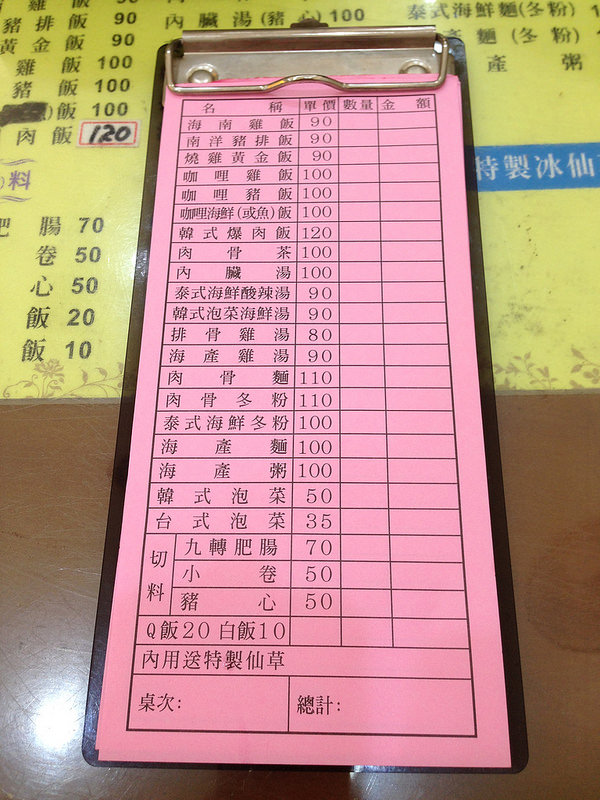 雞飯 90
豬排飯 90
黃金飯 90
雞飯 100
豬飯 100
)飯 100
肉飯 120
料
腸 70
卷 50
心 50
飯 20
飯 10
內臟湯(豬心) 100
泰式海鮮麵(冬粉) 1
產麵(冬粉)
產粥
特製冰仙
名稱 單價 數量 金額
海南雞飯 90
南洋豬排飯 90
燒雞黃金飯 90
咖哩雞飯 100
咖哩豬飯 100
咖哩海鮮(或魚)飯 100
韓式爆肉飯 120
肉骨茶 100
內臟湯 100
泰式海鮮酸辣湯 90
韓式泡菜海鮮湯 90
排骨雞湯 80
海產雞湯 90
肉骨麵 110
肉骨冬粉 110
泰式海鮮冬粉 100
海產麵 100
海產粥 100
韓式泡菜 50
台式泡菜 35
切料
九轉肥腸 70
小卷 50
豬心 50
Q飯20 白飯10
內用送特製仙草
桌次: 總計: